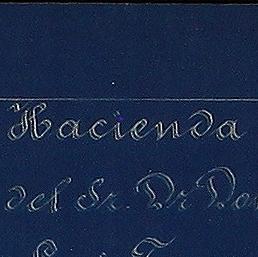 Hacienda
del Sr. Dr Do